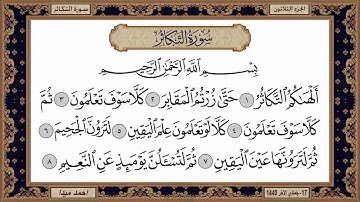 سورة التكاثر
الجزء الثلاثون
سُورَةُ التَّكَاثُرِ
بِسْمِ اللَّهِ الرَّحْمَٰنِ الرَّحِيمِ
أَلْهَىٰكُمُ التَّكَاثُرُ ١ حَتَّىٰ زُرْتُمُ الْمَقَابِرَ ٢ كَلَّا سَوْفَ تَعْلَمُونَ ٣ ثُمَّ
كَلَّا سَوْفَ تَعْلَمُونَ ٤ كَلَّا لَوْ تَعْلَمُونَ عِلْمَ الْيَقِينِ ٥ لَتَرَوُنَّ الْجَحِيمَ ٦
ثُمَّ لَتَرَوُنَّهَا عَيْنَ الْيَقِينِ ٧ ثُمَّ لَتُسْـَٔلُنَّ يَوْمَئِذٍ عَنِ النَّعِيمِ ٨
1440
احمد